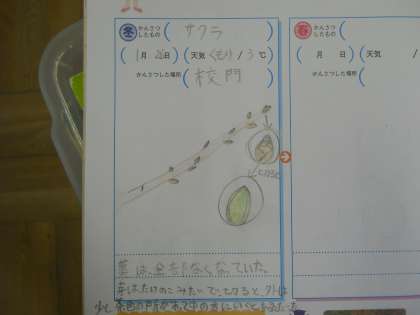 冬 かんさつしたもの( サクラ )
(1月26日)天気(くもり/3℃)
かんさつした場所(校門)
切ると
葉は、全部なくなっていた。
芽はたけのこみたいで、切ると、外は
少し茶色の
春 かんさつしたもの( )
( 月 日)天気( /
かんさつした場所(